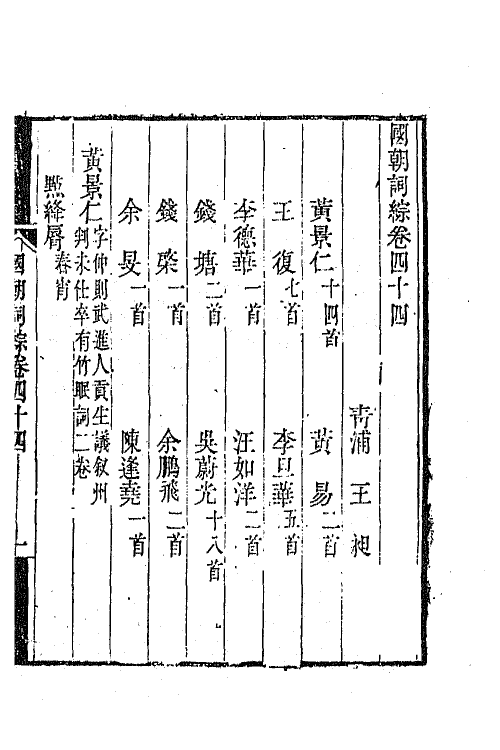 國朝詞綜卷四十四
青浦 王昶
黃景仁十四首 黃易二首
王復七首 李旦華五首
李德華一首 汪如洋二首
錢塘二首 吳蔚光十八首
錢棨一首 余鵬飛二首
余旻一首 陳逢堯一首
黃景仁字仲則武進人貢生議敘州
判未仕卒有竹眠詞二卷
點絳脣春宵
國朝詞綜卷四十四 一